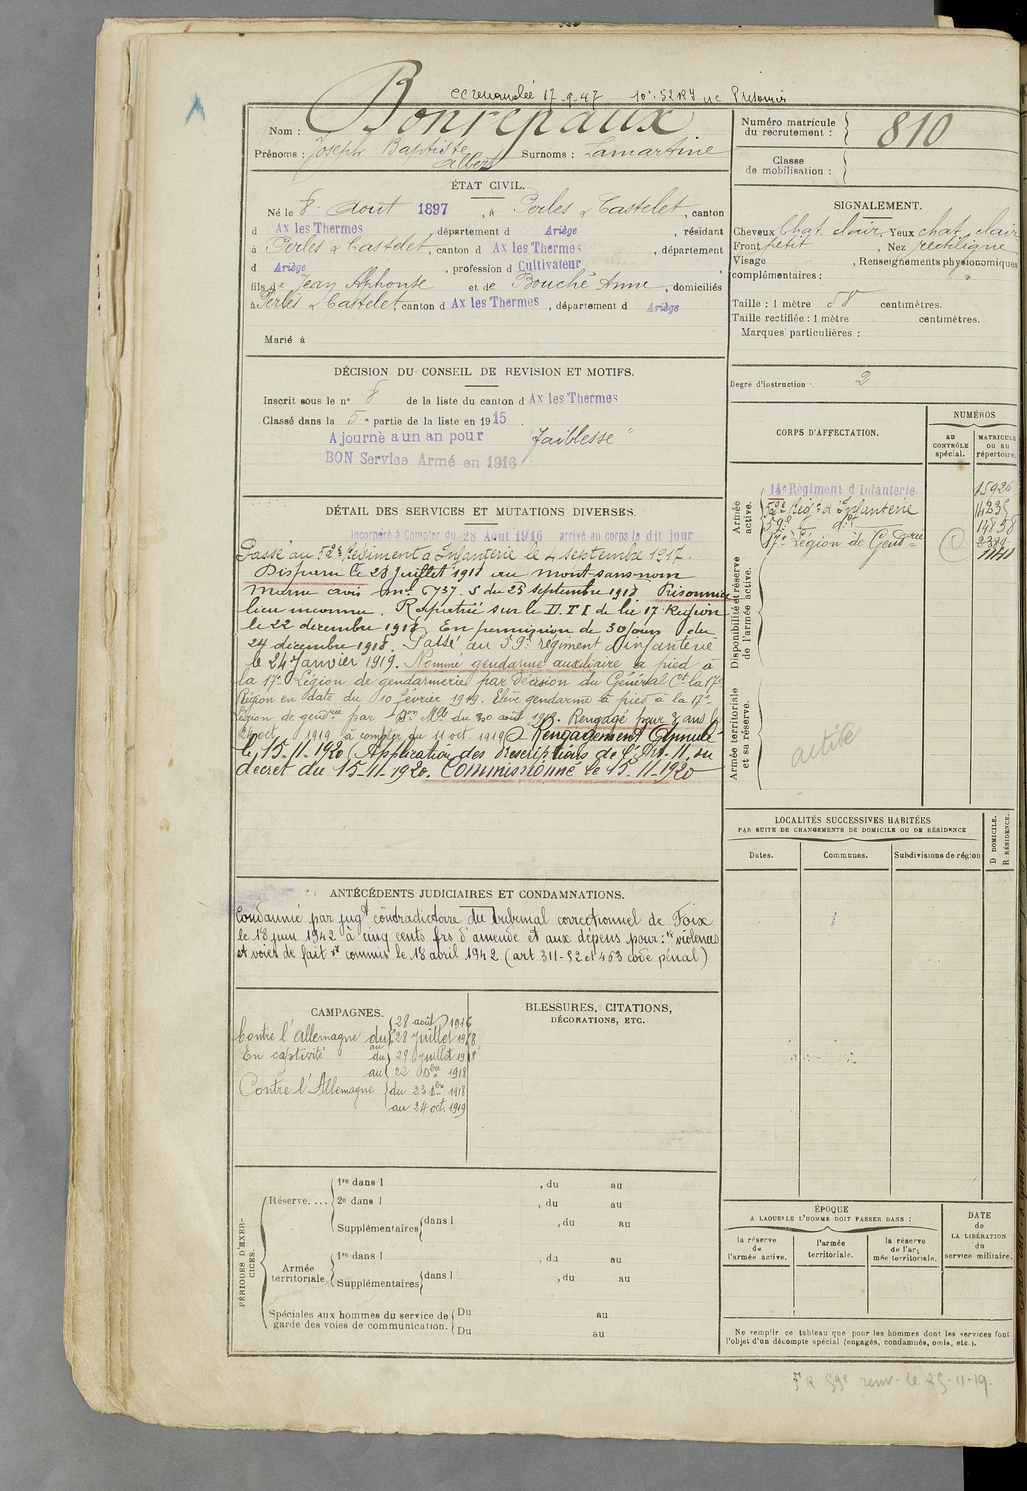 17-9-47
Nom : Bonrepaux
Prénoms : Joseph Baptiste Albert Surnoms : Lamartine
Numéro matricule du recrutement : 810
Classe de mobilisation :
ÉTAT CIVIL.
Né le 8 Aout 1897, à Perles & Castelet, canton
d Ax les Thermes, département d Ariège, résidant
à Perles & Castelet, canton d Ax les Thermes, département
d Ariège, profession d Cultivateur
fils de Jean Alphonse et de Bouché Anne, domiciliés
à Perles & Castelet, canton d Ax les Thermes, département d Ariège
Marié à
SIGNALEMENT.
Cheveux chat. clair Yeux chat. clair
Front petit, Nez rectiligne
Visage , Renseignements physionomiques
complémentaires :
Taille : 1 mètre 58 centimètres.
Taille rectifiée : 1 mètre centimètres.
Marques particulières :
Degré d'instruction : 2
DÉCISION DU CONSEIL DE REVISION ET MOTIFS.
Inscrit sous le n° 8 de la liste du canton d Ax les Thermes
Classé dans la 5e partie de la liste en 1915.
Ajourné a un an pour faiblesse
BON Service Armé en 1916
DÉTAIL DES SERVICES ET MUTATIONS DIVERSES.
Incorporé à Compter du 28 Aout 1916 arrivé au corps le dit jour
Passé au 52e Régiment d'Infanterie le 4 septembre 1917.
Disparu le 28 Juillet 1918 au mont-sans-nom
Marne avis du 23 septembre 1918 Prisonnier
lieu inconnu. Rapatrié sur le D. T I de la 17e Région
le 22 decembre 1918. En permission de 30 jours du
24 décembre 1918. Passé au 59e régiment d'infanterie
le 24 Janvier 1919. Nommé gendarme auxiliaire à pied à
la 17e Légion de gendarmerie par décision du Général Ct la 17e
Région en date du 10 février 1919. Elève gendarme à pied à la 17e
Légion de gendrie par Don Mlle du 30 août 1919. Rengagé pour 3 ans le
oct. 1919 à compter du 11 oct. 1919. Rengagement Annulé
le 15.11.1920 (Application des Prescriptions de l'Art. 11 du
decret du 15-11-1920. Commissionné le 15.11.1920
CORPS D'AFFECTATION.
NUMÉROS
au CONTRÔLE spécial.
MATRICULE ou au répertoire.
Armée active.
14e Régiment d'Infanterie 15926
52e Régt d'Infanterie
59e do 14858
17e Légion de Gendrie
Disponibilité et réserve de l'armée active.
Armée territoriale et sa réserve.
activé
LOCALITÉS SUCCESSIVES HABITÉES
PAR SUITE DE CHANGEMENTS DE DOMICILE OU DE RÉSIDENCE
Dates. Communes. Subdivisions de région
D DOMICILE. R RÉSIDENCE.
ANTÉCÉDENTS JUDICIAIRES ET CONDAMNATIONS.
Condamné par jugt contradictoire du tribunal correctionnel de Foix
le 18 juin 1942 à cinq cents frs d'amende et aux dépens pour : violences
et voies de fait commis le 18 abril 1942 (art 311-52 et 463 code pénal)
CAMPAGNES.
Contre l'Allemagne du 28 août 1916
au 28 Juillet 1918
En captivité du 29 Juillet 1918
au 22 Dbre 1918
Contre l'Allemagne du 23 Dbre 1918
au 24 oct. 1919
BLESSURES, CITATIONS,
DÉCORATIONS, ETC.
PÉRIODES D'EXERCICES.
Réserve....
1re dans l , du au
2e dans l , du au
Supplémentaires dans l , du au
Armée territoriale
1re dans l , du au
Supplémentaires dans l , du au
Spéciales aux hommes du service de garde des voies de communication.
Du au
Du au
ÉPOQUE
A LAQUELLE L'HOMME DOIT PASSER DANS :
la réserve de l'armée active.
l'armée territoriale.
la réserve de l'armée territoriale.
DATE de LA LIBÉRATION du service militaire.
Ne remplir ce tableau que pour les hommes dont les services font
l'objet d'un décompte spécial (engagés, condamnés, omis, etc.).
59e renv. le 25-11-19.